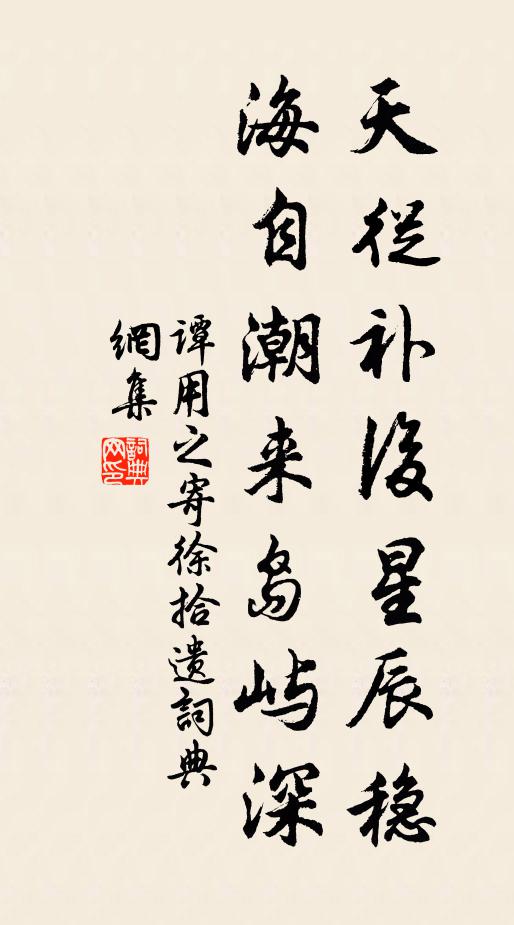 天從补後星辰稳
海自潮来岛屿深
谭用之寄徐拾遗詞典
網集
詞典
网印